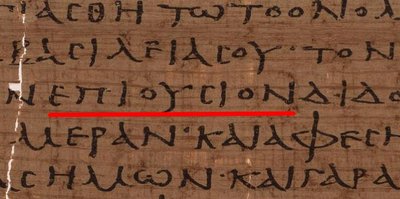 ΓΙΑϹΘΗΤΩΤΟΟΝΟΜ
ΒΑϹΙΛΕΙΑϹΟΥ·ΤΟΝ
ΝΕΠΙΟΥϹΙΟΝΔΙΔΟ
ΜΕΡΑΝ·ΚΑΙΑΦΕϹΗ
ΑϹΗΜΩΝ·ΚΑΙΓΑΡΑ